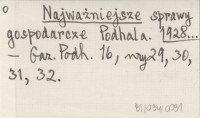 Najważniejsze sprawy
gospodarcze Podhala. 1928...
– Gaz. Podh. 16, nry 29, 30,
31, 32.